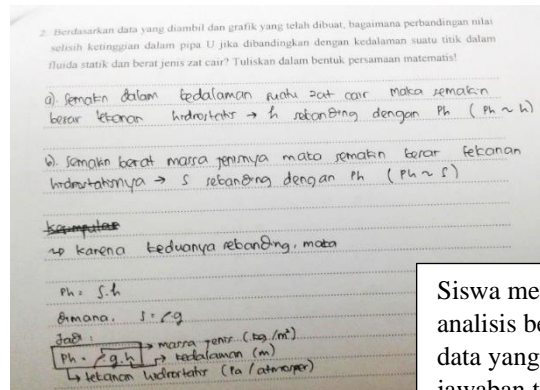 2. Berdasarkan data yang diambil dan grafik yang telah dibuat, bagaimana perbandingan nilai
selisih ketinggian dalam pipa U jika dibandingkan dengan kedalaman suatu titik dalam
fluida statik dan berat jenis zat cair? Tuliskan dalam bentuk persamaan matematis!
a). Semakin dalam kedalaman suatu zat cair maka semakin
besar tekanan hidrostatis → h sebanding dengan Ph (Ph ~ h)
b). Semakin berat massa jenisnya maka semakin besar tekanan
hidrostatisnya → S sebanding dengan Ph (Ph ~ S)
Kesimpulan
→ karena keduanya sebanding, maka
Ph = S.h
dimana, S = ρg
Jadi :
Ph = ρg.h
→ massa jenis (kg/m³)
→ kedalaman (m)
→ tekanan hidrostatis (Pa / atmosper)
Siswa me
analisis be
data yang
jawaban t